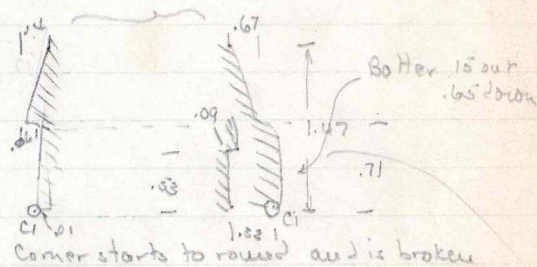 .14 .67
Batter is out
.65 down
.09
.061
1.47
.53 .71
C1 .01 C1
1.33
Corner starts to round and is broken